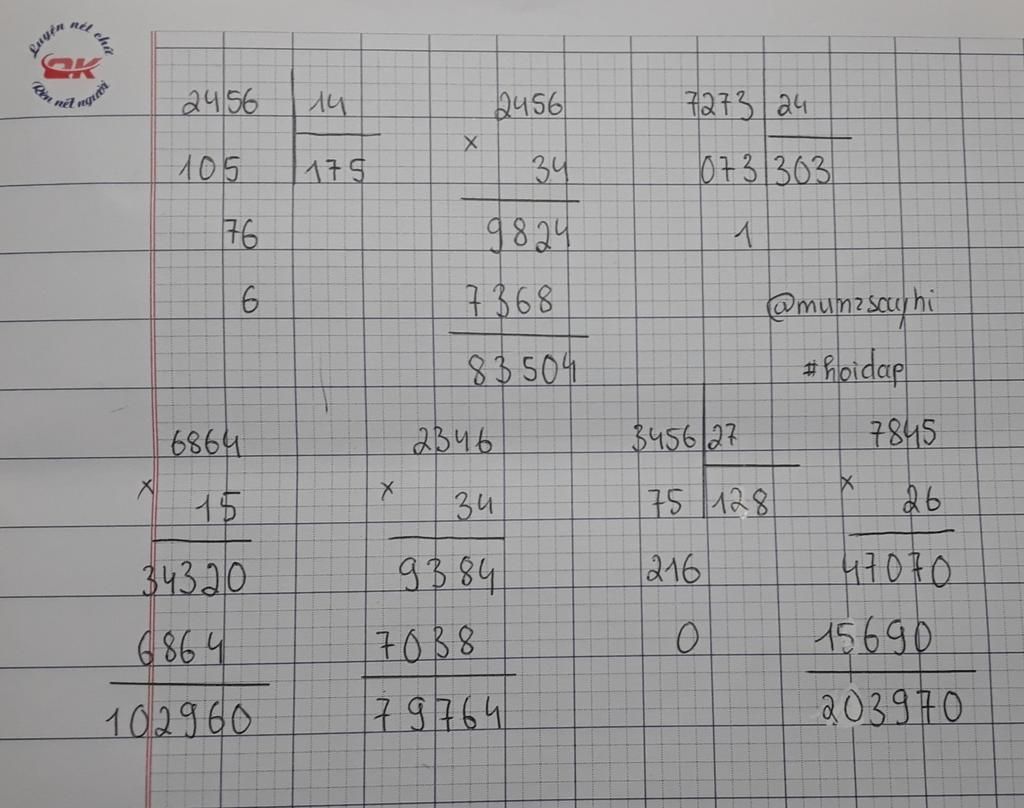 Luyện nét chữ
ĐK
Rèn nết người
2456 14 2456 7273 24
105 175 x 34 073 303
76 9824 1
6 7368 @munzscuyhi
83504 #hoidap
6864 2346 3456 27 7845
x 15 x 34 75 128 x 26
34320 9384 216 47070
6864 7038 0 15690
102960 79764 203970